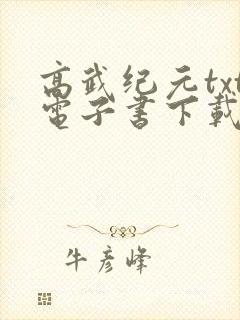 高武纪元txt
電子書下載
牛彦峰